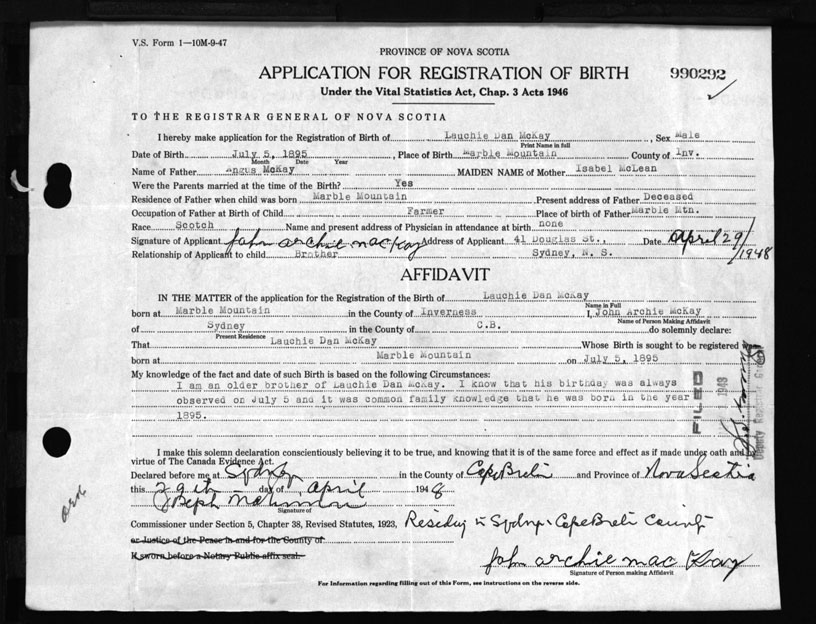 V.S. Form 1—10M-9-47
PROVINCE OF NOVA SCOTIA
APPLICATION FOR REGISTRATION OF BIRTH 990292
Under the Vital Statistics Act, Chap. 3 Acts 1946
TO THE REGISTRAR GENERAL OF NOVA SCOTIA
I hereby make application for the Registration of Birth of Lauchie Dan McKay, Sex Male
Print Name in full
Date of Birth July 5, 1895, Place of Birth Marble Mountain County of Inv.
Month Date Year
Name of Father Angus McKay MAIDEN NAME of Mother Isabel McLean
Were the Parents married at the time of the Birth? Yes
Residence of Father when child was born Marble Mountain Present address of Father Deceased
Occupation of Father at Birth of Child Farmer Place of birth of Father Marble Mtn.
Race Scotch Name and present address of Physician in attendance at birth none
Signature of Applicant John Archie MacKay Address of Applicant 41 Douglas St., Date April 29/
Relationship of Applicant to child Brother Sydney, N. S. /1948
AFFIDAVIT
IN THE MATTER of the application for the Registration of the Birth of Lauchie Dan McKay
Name in Full
born at Marble Mountain in the County of Inverness I, John Archie McKay
Name of Person Making Affidavit
of Sydney in the County of C.B. do solemnly declare:
Present Residence
That Lauchie Dan McKay Whose Birth is sought to be registered was
born at Marble Mountain on July 5, 1895
My knowledge of the fact and date of such Birth is based on the following Circumstances:
I am an older brother of Lauchie Dan McKay. I know that his birthday was always
observed on July 5 and it was common family knowledge that he was born in the year
1895.
FILED 1948
I make this solemn declaration conscientiously believing it to be true, and knowing that it is of the same force and effect as if made under oath and by
virtue of The Canada Evidence Act.
Declared before me at Sydney in the County of Cape Breton and Province of Nova Scotia
this 29th day of April 1948
Joseph
Signature of
Commissioner under Section 5, Chapter 38, Revised Statutes, 1923, Residing in Sydney, Cape Breton County
or Justice of the Peace in and for the County of
If sworn before a Notary Public affix seal.
John Archie MacKay
Signature of Person making Affidavit
For Information regarding filling out of this Form, see Instructions on the reverse side.